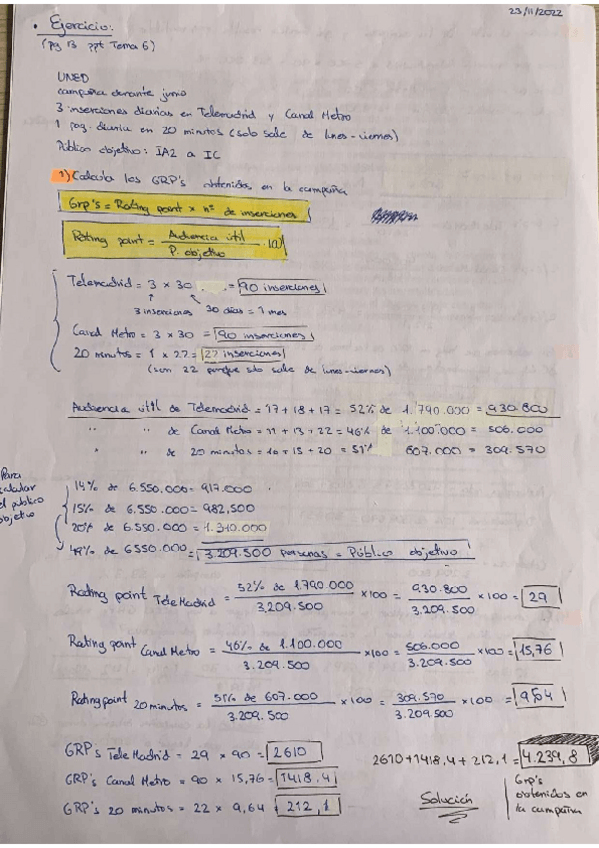 23/11/2022
• Ejercicio:
(pg 13 ppt Tema 6)
UNED
campaña durante junio
3 inserciones diarias en Telemadrid y Canal Metro
1 pag. diaria en 20 minutos (solo sale de lunes-viernes)
Público objetivo: IA2 a IC
1) Calcula los GRP's obtenidos en la campaña
Grp's = Rating point x nº de inserciones
Rating point = Audiencia útil / P. objetivo
Telemadrid = 3 x 30 = 90 inserciones
3 inserciones 30 días = 1 mes
Canal Metro = 3 x 30 = 90 inserciones
20 minutos = 1 x 22 = 22 inserciones
(son 22 porque solo sale de lunes-viernes)
Audiencia útil de Telemadrid = 17 + 18 + 17 = 52% de 1.790.000 = 930.800
" " de Canal Metro = 11 + 13 + 22 = 46% de 1.100.000 = 506.000
" " de 20 minutos = 16 + 15 + 20 = 51% 607.000 = 309.570
Para calcular el público objetivo
14% de 6.550.000 = 917.000
15% de 6.550.000 = 982,500
20% de 6.550.000 = 1.310.000
49% de 6550.000 = 3.209.500 personas = Público objetivo
Rating point TeleMadrid = 52% de 1.790.000 / 3.209.500 x100 = 930.800 / 3.209.500 x100 = 29
Rating point Canal Metro = 46% de 1.100.000 / 3.209.500 x100 = 506.000 / 3.209.500 x100 = 15,76
Rating point 20 minutos = 51% de 607.000 / 3.209.500 x100 = 309.570 / 3.209.500 x100 = 9,64
GRP's TeleMadrid = 29 x 90 = 2610
GRP's Canal Metro = 90 x 15,76 = 1418,4
GRP's 20 minutos = 22 x 9,64 = 212,1
2610 + 1418,4 + 212,1 = 4.239,8
Solución
Grp's obtenidos en la campaña